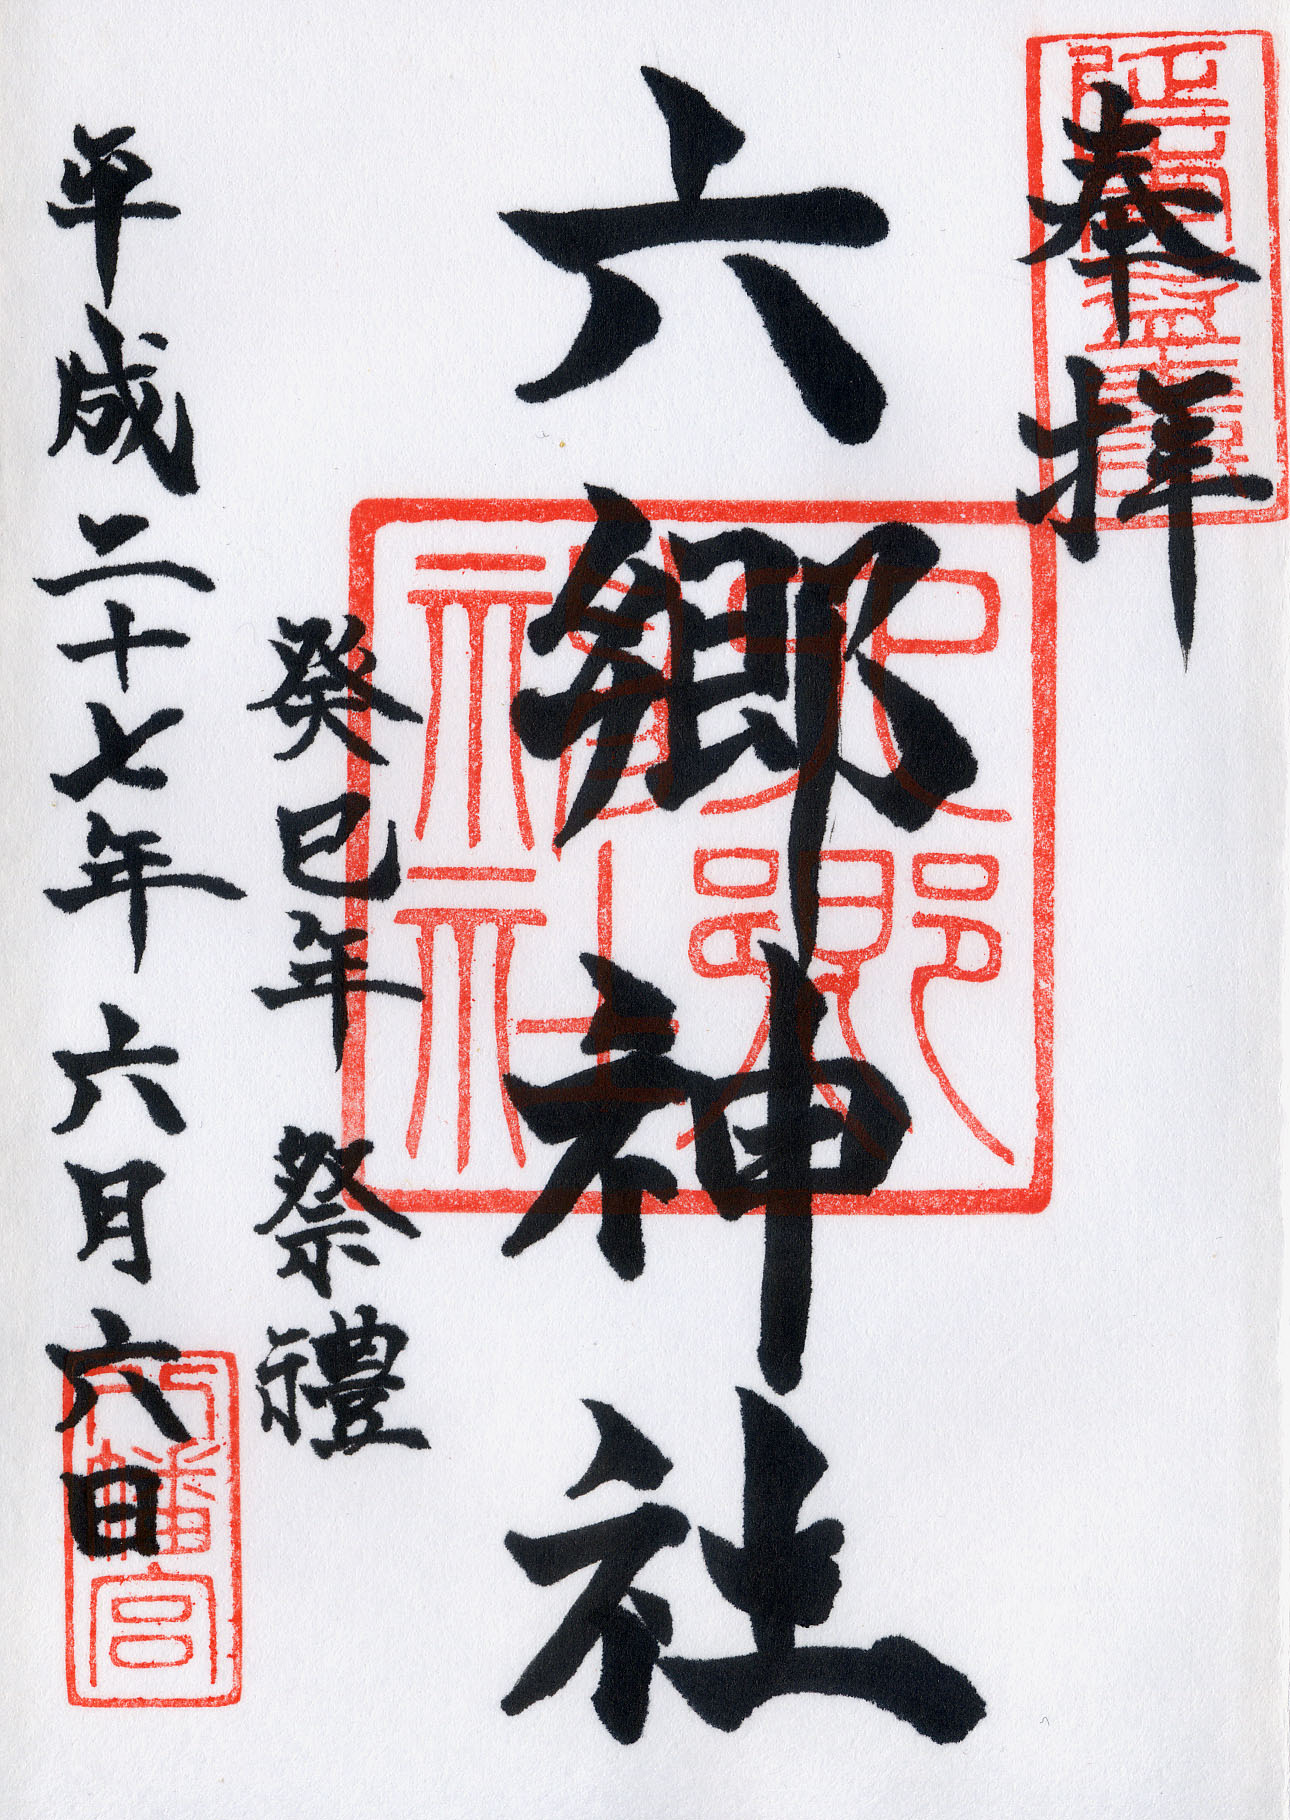 奉拝
六郷神社
癸巳年 祭禮
平成二十七年 六月六日
六郷神社
八幡宮